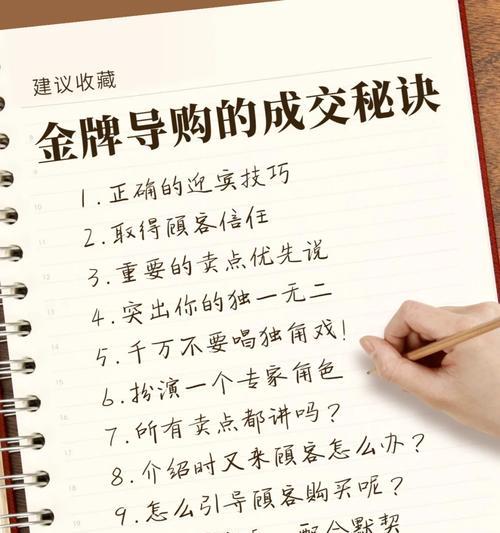 建议收藏
金牌导购的成交秘诀
1.正确的迎宾技巧
2.取得顾客信任
3.重要的卖点优先说
4.突出你的独一无二
5.千万不要唱独角戏!
6.扮演一个专家角色
7.所有卖点都讲吗?
8.介绍时又来顾客怎么办?
9.怎么引导顾客购买呢?
配合默契